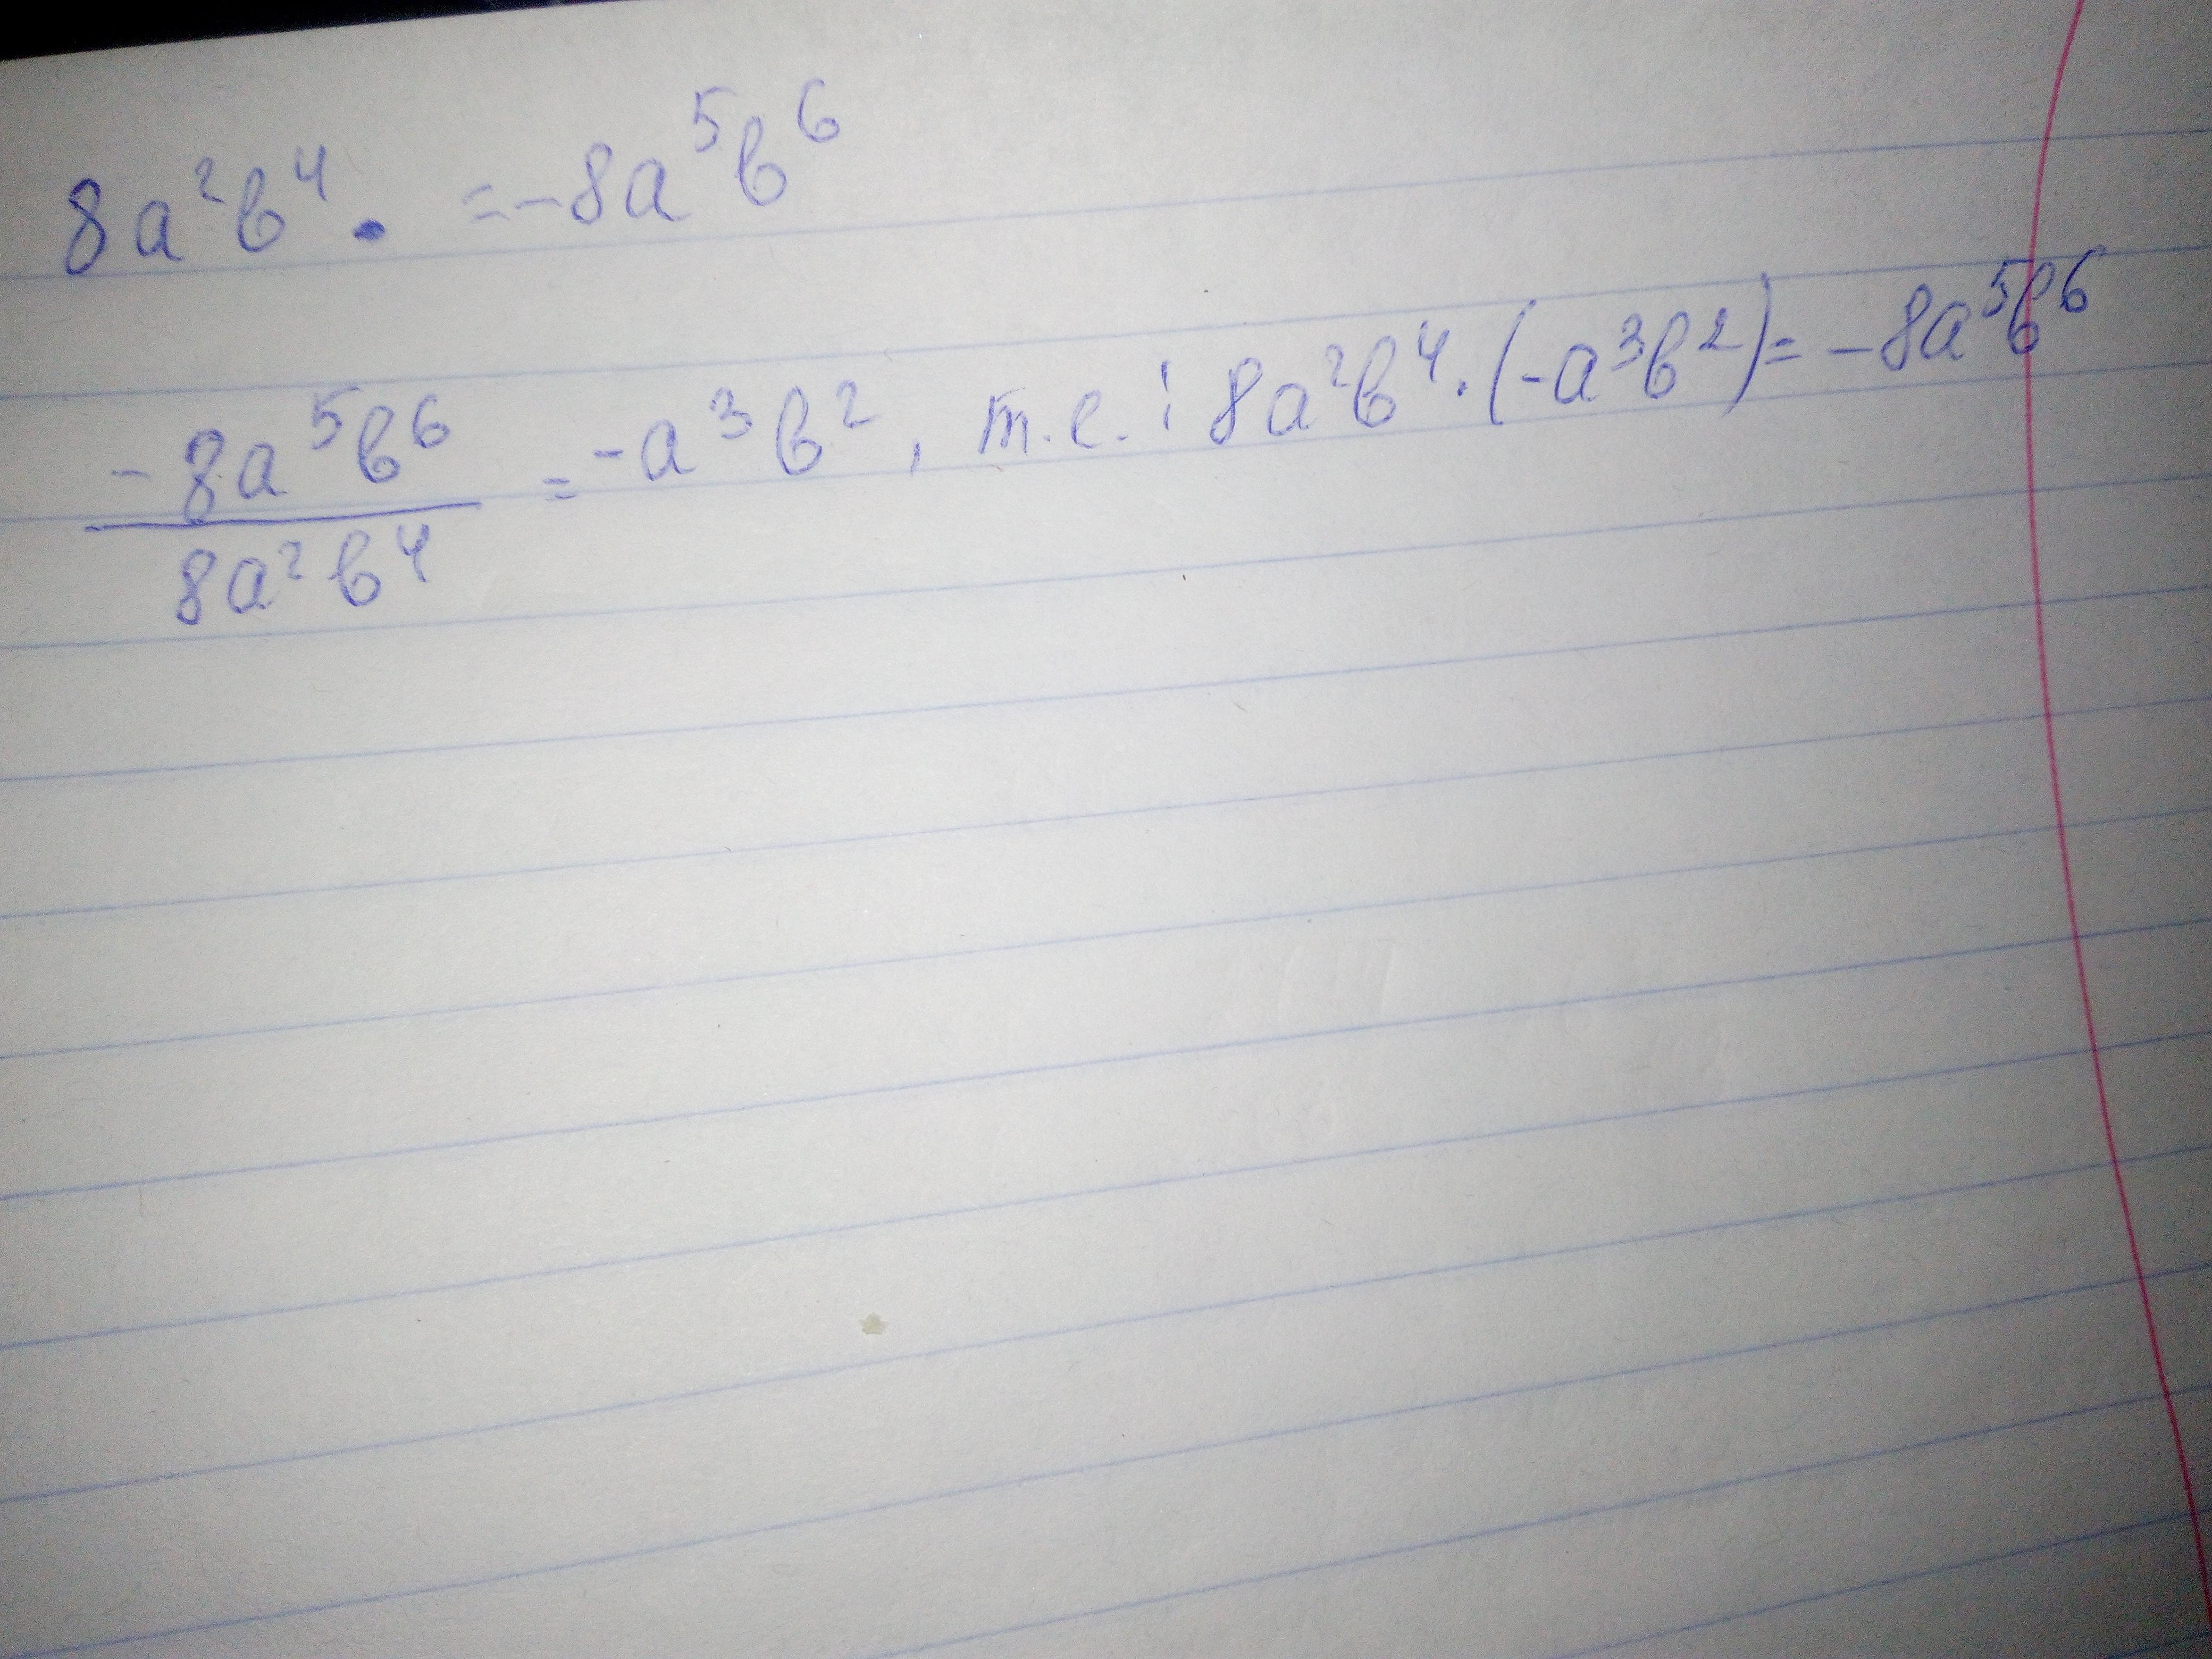 8a²b⁴ · = -8a⁵b⁶
-8a⁵b⁶ / 8a²b⁴ = -a³b², т.е.: 8a²b⁴ · (-a³b²) = -8a⁵b⁶